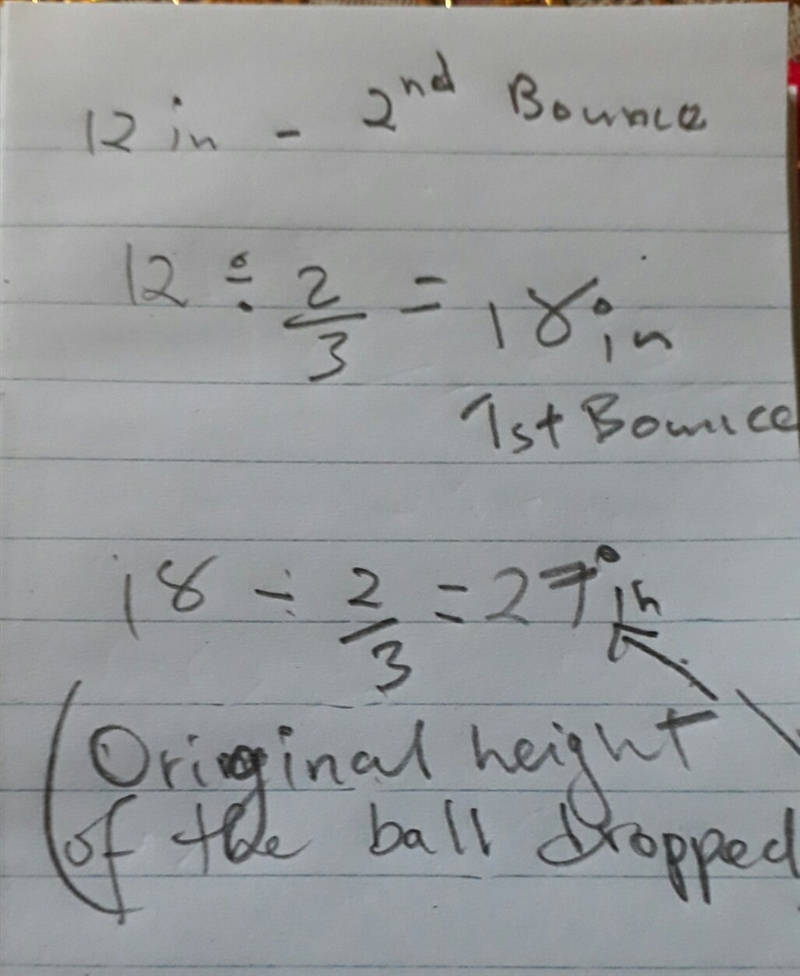 12 in - 2nd Bounce
12 ÷ 2/3 = 18 in
1st Bounce
18 ÷ 2/3 = 27 in
(Original height
of the ball dropped